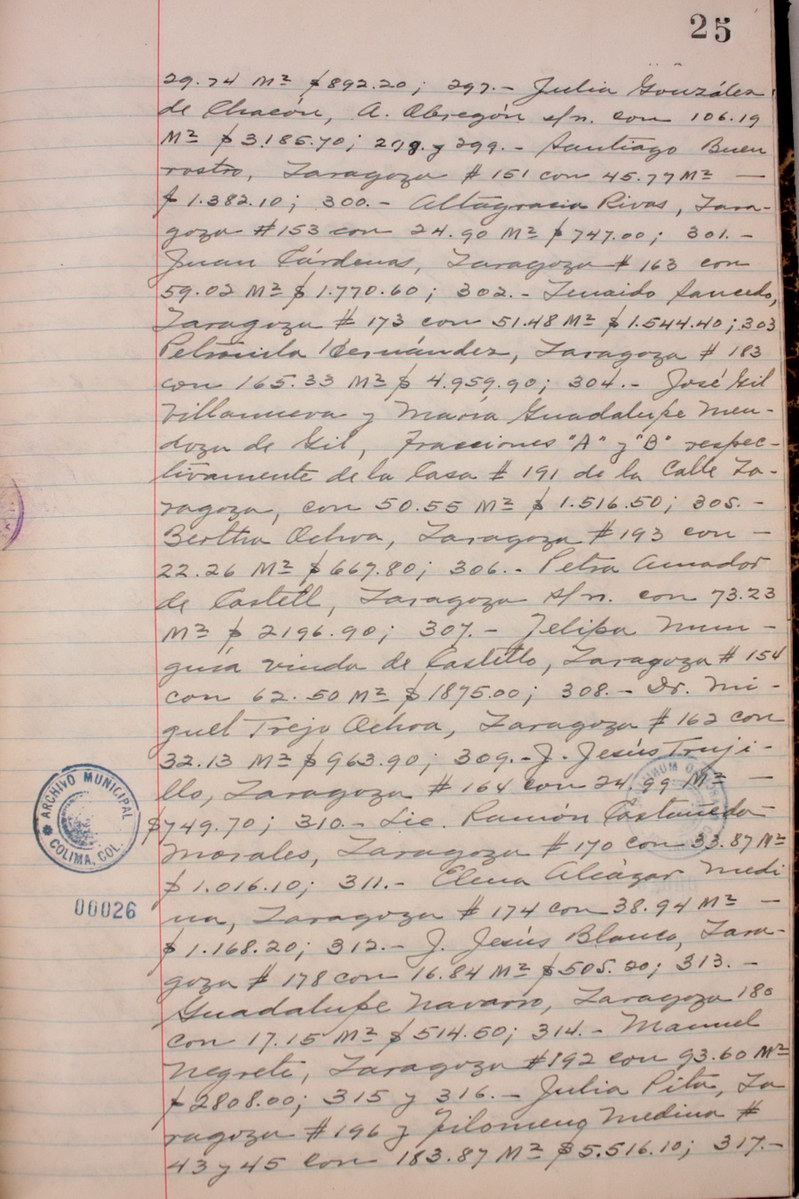 25
29.74 M² $892.20; 297.- Julia González
de Chacón, A. Obregón s/n. con 106.19
M² $3.185.70; 298. y 299.- Santiago Buen
rostro, Zaragoza # 151 con 45.77 M² —
$1.382.10; 300.- Altagracia Rivas, Zara-
goza #153 con 24.90 M² $747.00; 301.-
Juan Cárdenas, Zaragoza # 163 con
59.02 M² $1.770.60; 302.- Zenaido Saucedo,
Zaragoza # 173 con 51.48 M² $1.544.40; 303
Petronila Hernández, Zaragoza # 183
con 165.33 M² $4.959.90; 304.- José Gil
Villanueva y María Guadalupe Men-
doza de Gil, Fracciones "A" y "B" respec-
tivamente de la Casa # 191 de la Calle Za-
ragoza, con 50.55 M² $1.516.50; 305.-
Bertha Ochoa, Zaragoza # 193 con -
22.26 M² $667.80; 306.- Petra Amador
de Castell, Zaragoza s/n. con 73.23
M² $2196.90; 307.- Felipa Mun-
guía viuda de Castillo, Zaragoza # 154
con 62.50 M² $1875.00; 308.- Dr. Mi-
guel Trejo Ochoa, Zaragoza # 162 con
32.13 M² $963.90; 309.- J. Jesús Truji-
llo, Zaragoza # 164 con 24.99 M² —
$749.70; 310.- Lic. Ramón Castañeda
Morales, Zaragoza # 170 con 33.87 M²
$1.016.10; 311.- Elena Alcázar Medi
na, Zaragoza # 174 con 38.94 M² -
$1.168.20; 312.- J. Jesús Blanco, Zara-
goza # 178 con 16.84 M² $505.20; 313.-
Guadalupe Navarro, Zaragoza 180
con 17.15 M² $514.50; 314.- Manuel
Negrete, Zaragoza #192 con 93.60 M²
$2808.00; 315 y 316.- Julia Pita, Za
ragoza # 196 y Filomeno Medina #
43 y 45 con 183.87 M² $5.516.10; 317.-
ARCHIVO MUNICIPAL
COLIMA, COL.
00026